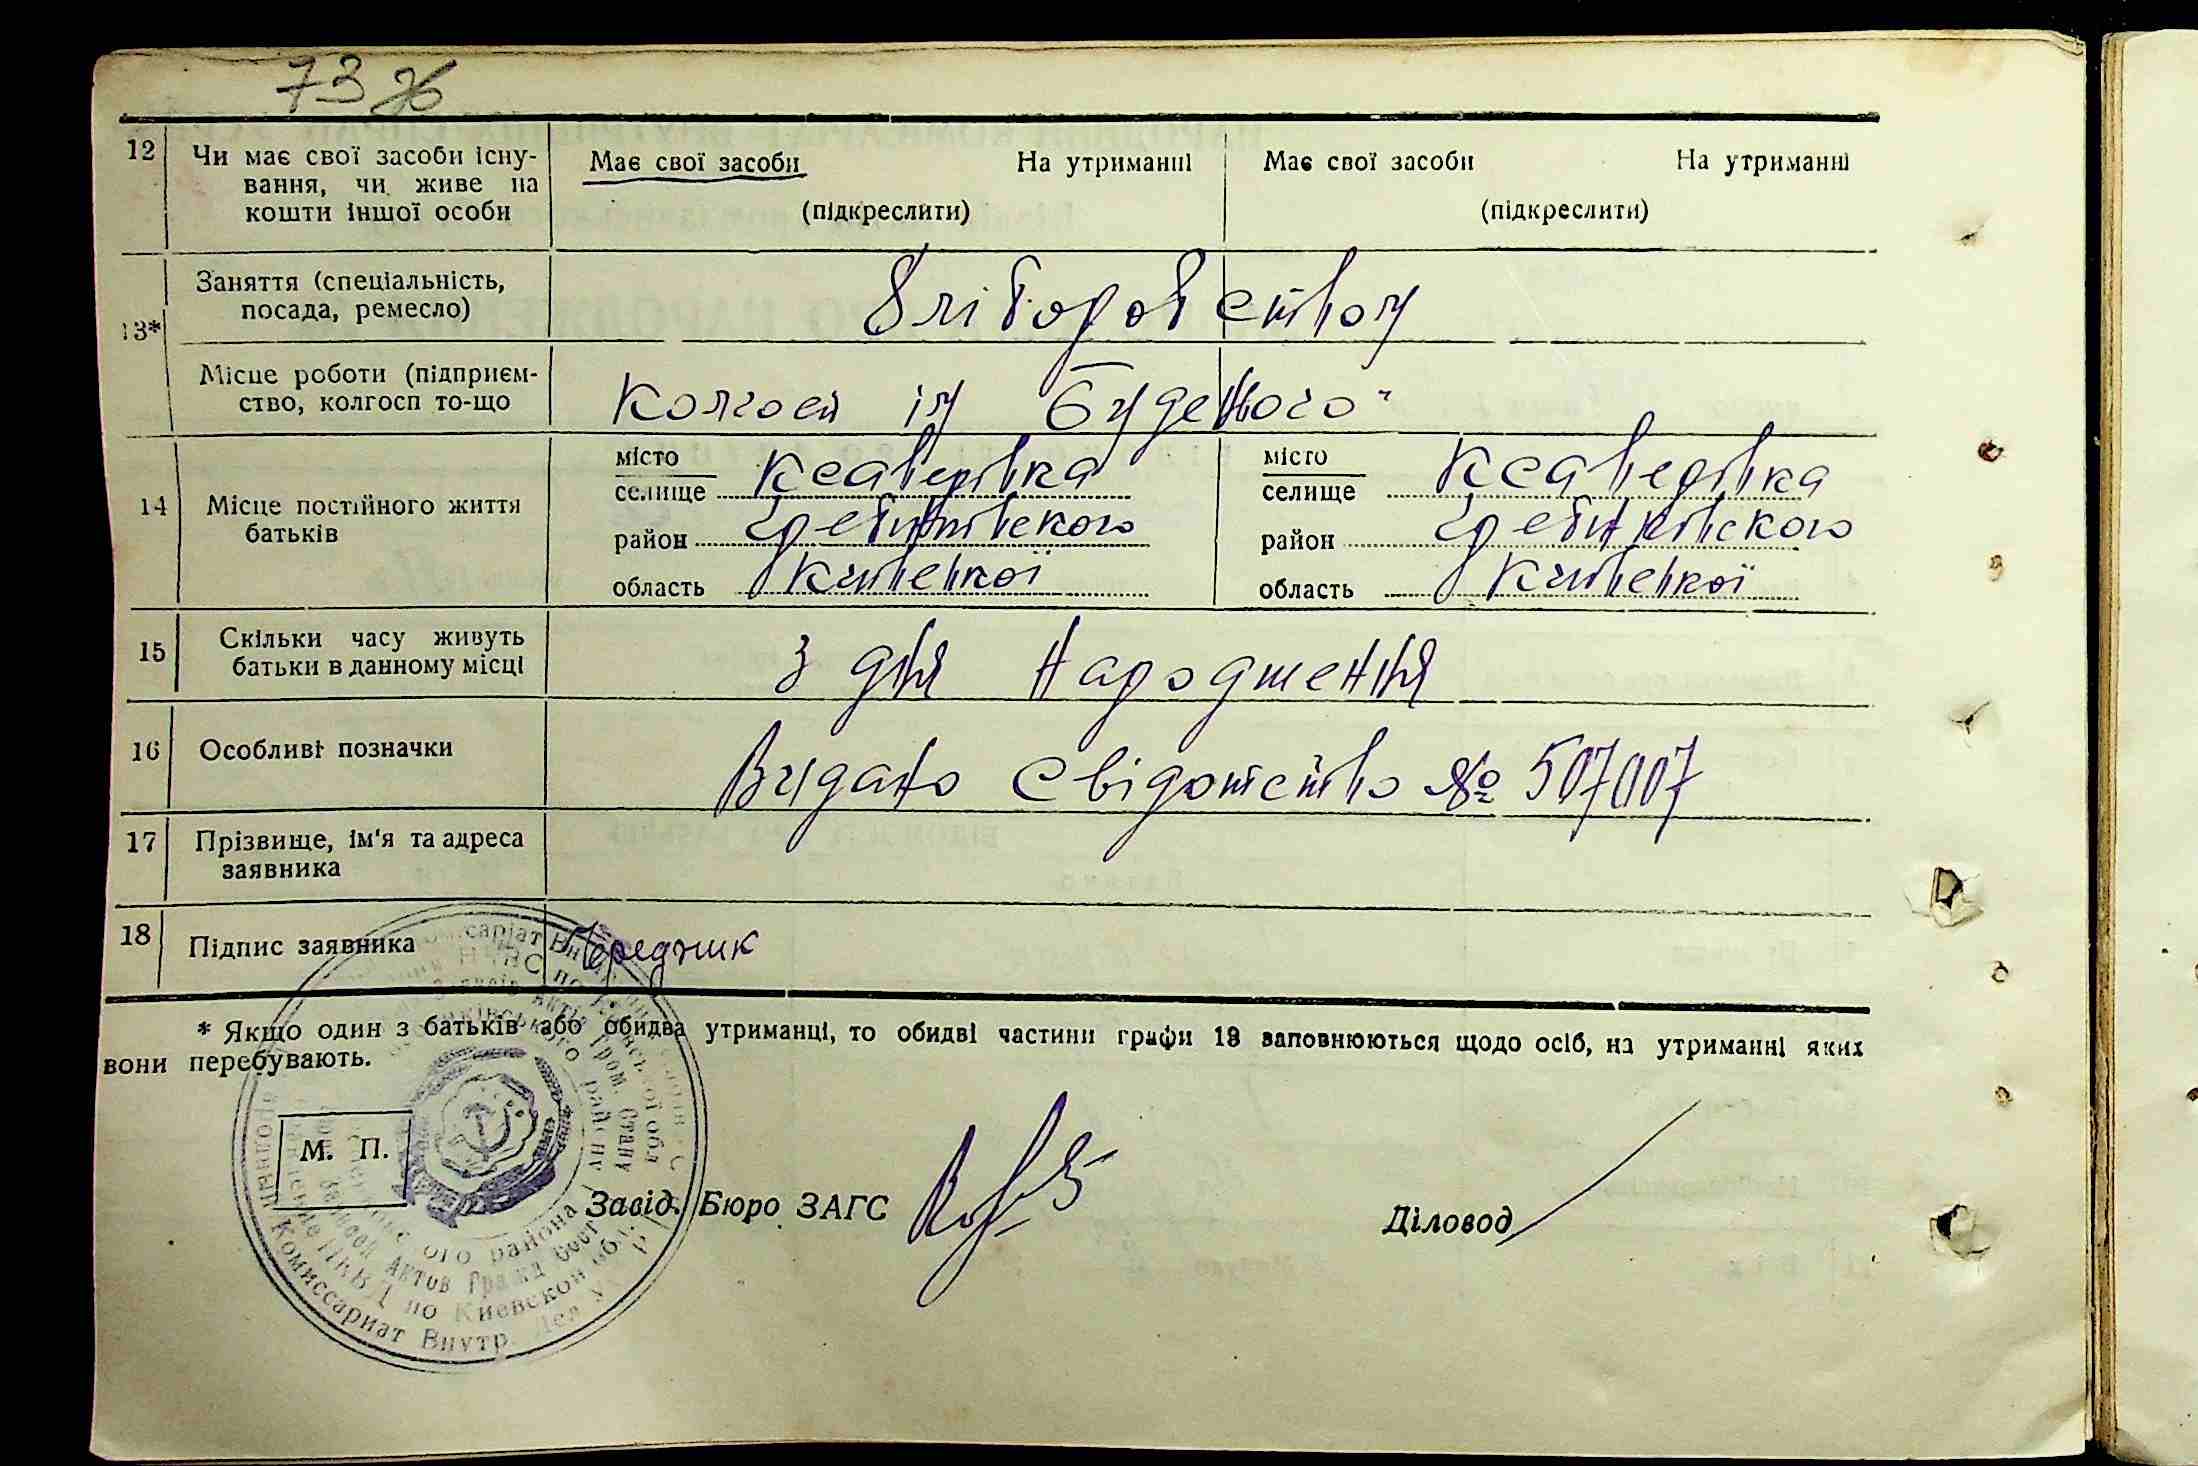 73 зв
12 Чи має свої засоби існу-
вання, чи живе на
кошти іншої особи
Має свої засоби На утриманні
(підкреслити)
Має свої засоби На утриманні
(підкреслити)
13* Заняття (спеціальність,
посада, ремесло)
Хліборобством
Місце роботи (підприєм-
ство, колгосп то-що
Колгосп ім Буденого"
14 Місце постійного життя
батьків
місто
селище Ксаверівка
район Гребінківського
область Київської
місто
селище Ксаверівка
район Гребінківского
область Київської
15 Скільки часу живуть
батьки в данному місці
З дня Народження
16 Особливі позначки
Видано Свідотство № 507007
17 Прізвище, ім'я та адреса
заявника
18 Підпис заявника
Чередник
* Якщо один з батьків або обидва утриманці, то обидві частини графи 13 заповнюються щодо осіб, на утриманні яких
вони перебувають.
М. П.
Завід. Бюро ЗАГС
Діловод
Комиссариат Внутр. Дел
по Киевской обл.
Актов Гражд
ого района